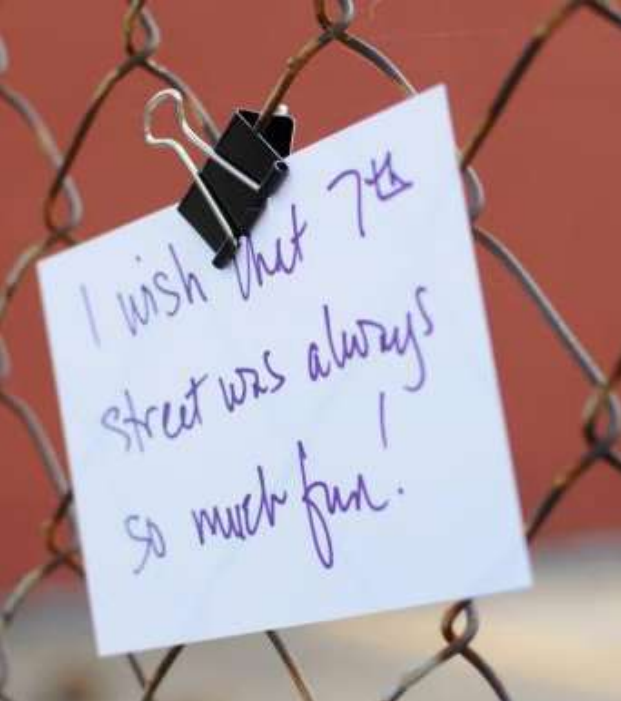 I wish that 7th
street was always
so much fun!